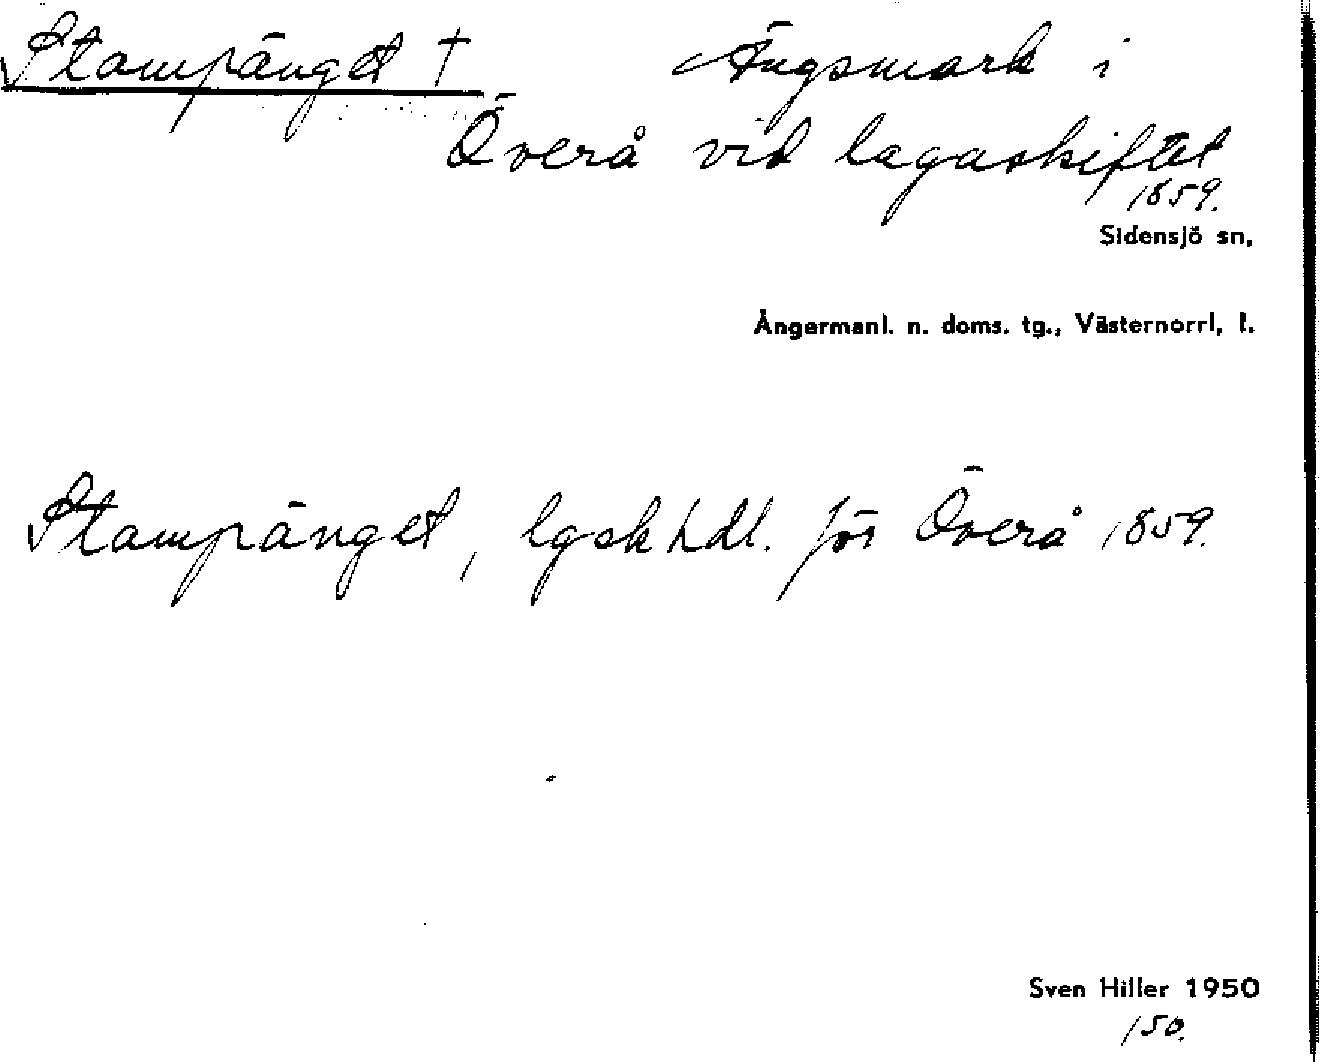 Stampänget † Ängsmark i
Överå vid lagaskiftet
1859.
Sidensjö sn,
Ångermanl. n. doms. tg., Västernorrl, l.
Stampänget, lgskhdl. för Överå 1859.
Sven Hiller 1950
150.